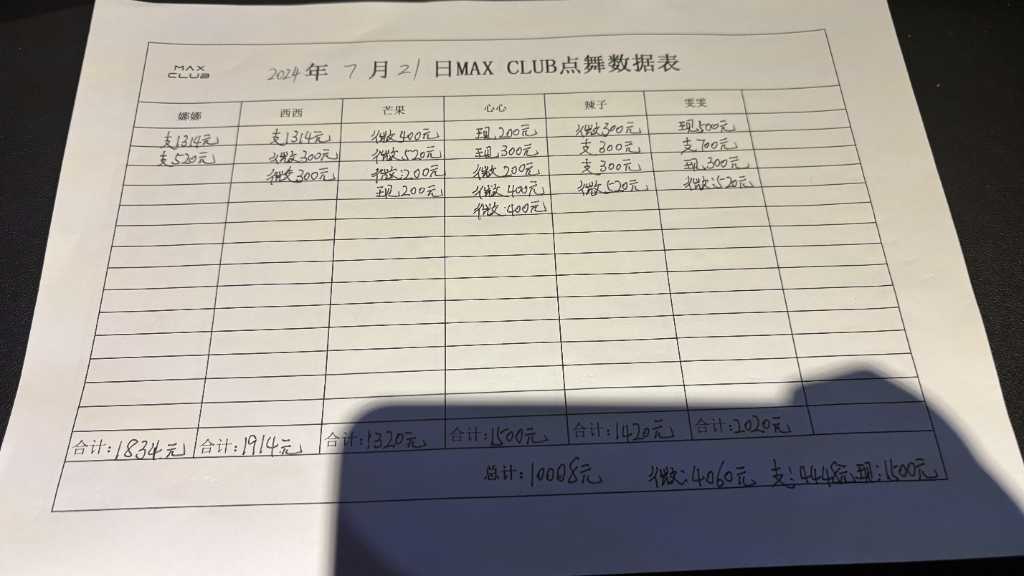 MAX
CLUB
2024年 7月21日MAX CLUB点舞数据表
娜娜 西西 芒果 心心 辣子 雯雯
支1314元 支1314元 微400元 现.200元 微300元 现500元
支520元 微300元 微520元 现.300元 支300元 支700元
微300元 微:200元 微200元 支300元 现.300元
现.200元 微400元 微520元 微:520元
微:400元
合计:1834元 合计:1914元 合计:1320元 合计:1500元 合计:1420元 合计:2020元
总计:10008元 微:4060元 支:4448元 现:1500元